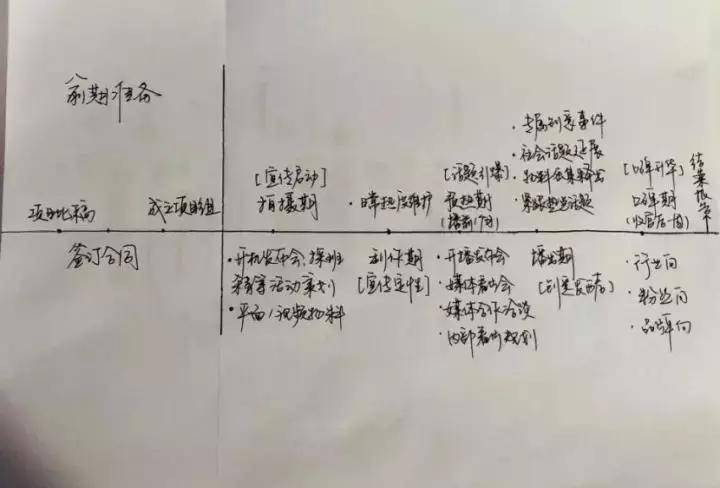 前期准备
项目比稿
成立项目组
签订合同
[宣传启动]
拍摄期
·开机发布会、探班
杀青等活动策划
·平面/视频物料
·日常热度维护
制作期
[宣传定性]
[话题引爆]
预热期
(播前1月)
·开播发布会
·媒体看片会
·媒体合作洽谈
·内部看片规划
·专属创意事件
·社会话题延展
·物料密集释出
·紧跟热点话题
播出期
[口碑升华]
口碑期
(收官后一周)
·行业向
·粉丝向
·品牌向
结案报告